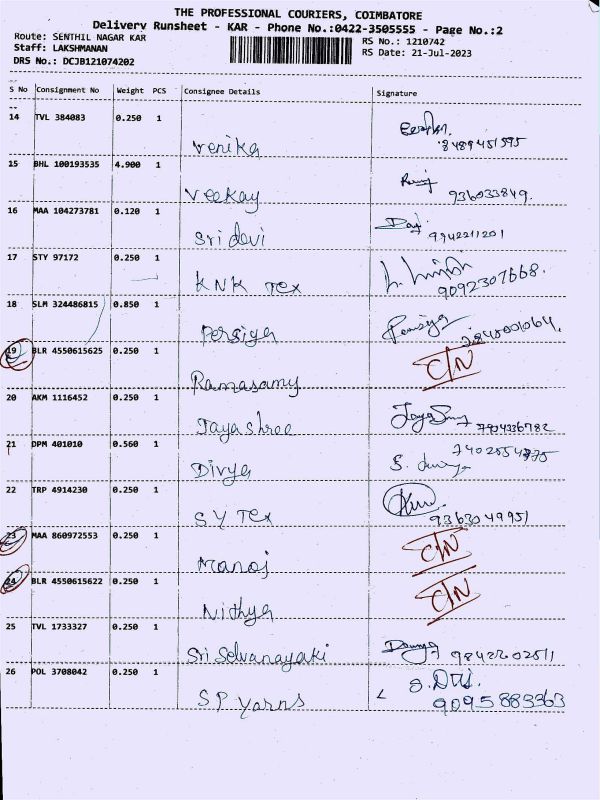 THE PROFESSIONAL COURIERS, COIMBATORE
Delivery Runsheet - KAR - Phone No.:0422-3505555 - Page No.:2
Route: SENTHIL NAGAR KAR
RS No.: 1210742
Staff: LAKSHMANAN
RS Date: 21-Jul-2023
DRS No.: DCJB121074202
S No Consignment No Weight PCS Consignee Details Signature
14 TVL 384083 0.250 1
Venika
8489451595
15 BHL 100193535 4.900 1
Veekay
936033849.
16 MAA 104273781 0.120 1
Sri devi
9942211201
17 STY 97172 0.250 1
KNK Tex
9092307668.
18 SLM 324486815 0.850 1
Persiya
19 BLR 4550615625 0.250 1
C/N
Ramasamy
20 AKM 1116452 0.250 1
Jayashree
7904336782
21 DPM 401010 0.560 1
Divya
S. Divya
22 TRP 4914230 0.250 1
SY Tex
9363049951
23 MAA 860972553 0.250 1
C/N
Manoj
24 BLR 4550615622 0.250 1
C/N
Nithya
25 TVL 1733327 0.250 1
Sri Selvanayaki
9842202511
26 POL 3708042 0.250 1
SP Yarns
9095883363